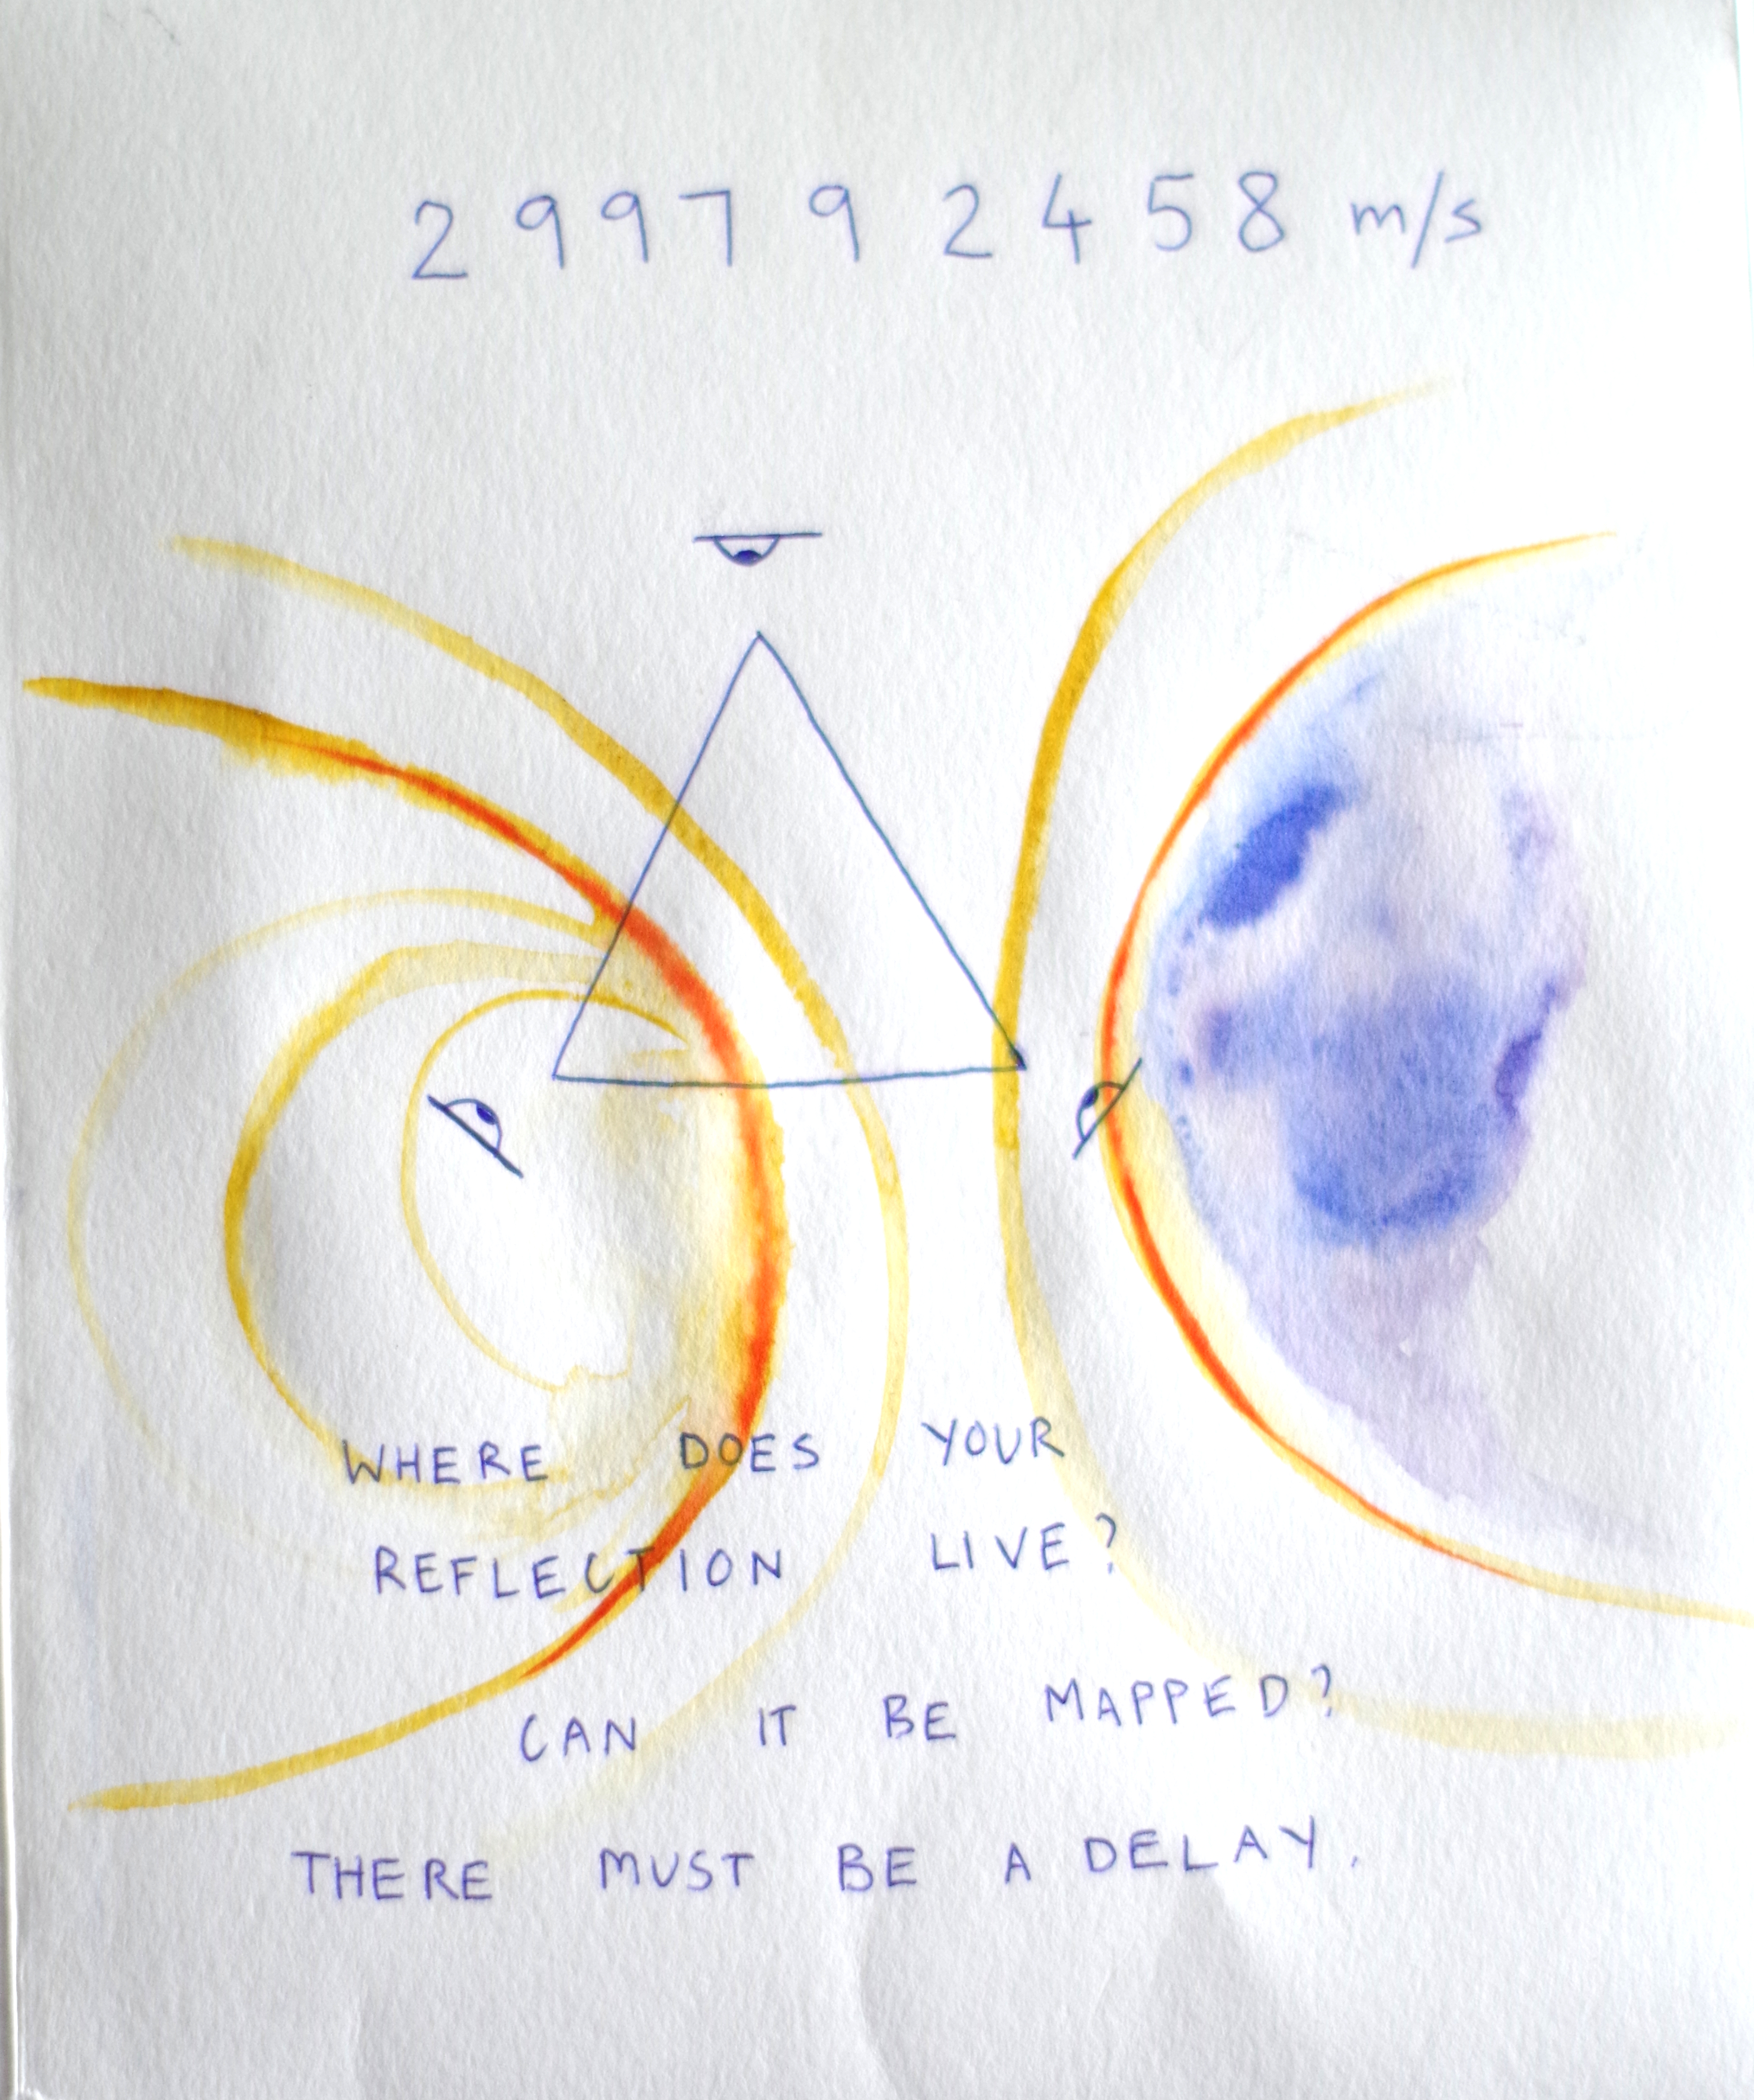 299792458 m/s
WHERE DOES YOUR
REFLECTION LIVE?
CAN IT BE MAPPED?
THERE MUST BE A DELAY.